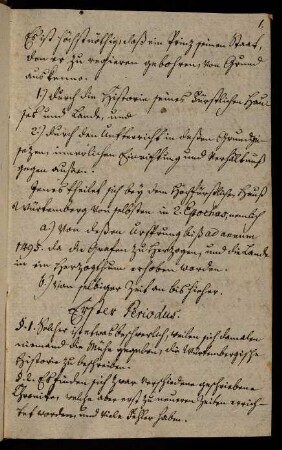 1.
Es ist höchst nöthig, daß ein Prinz seinen Staat,
den er zu regieren gebohren, von Grund
aus kenne.
1.) durch die Historie seines Fürstlichen Hau-
ses und Lande, und
2.) durch den Unterricht in deßen Grundge-
setzen, innerlichen Einrichtung und Verhältniß
gegen außen.
Jenes theilet sich bey dem Hochfürstlichen Hauß
Würtemberg von selbsten in 2. Epochas, nemlich
a.) Von deßen Ursprung biß ad annum
1495. da die Grafen zu Hertzogen, und die Lande
in ein Herzogthum erhoben worden.
b.) Von selbiger Zeit an bis hieher.
Erster Periodus.
§. 1. Solcher ist etwas beschwerlich, weilen sich damalen
niemand die Mühe gegeben, die Würtembergische
Historie zu beschreiben.
§. 2. Es finden sich zwar verschiedene geschriebene
Chroniken, welche aber erst in neueren Zeiten errich-
tet worden, und viele Fehler haben.